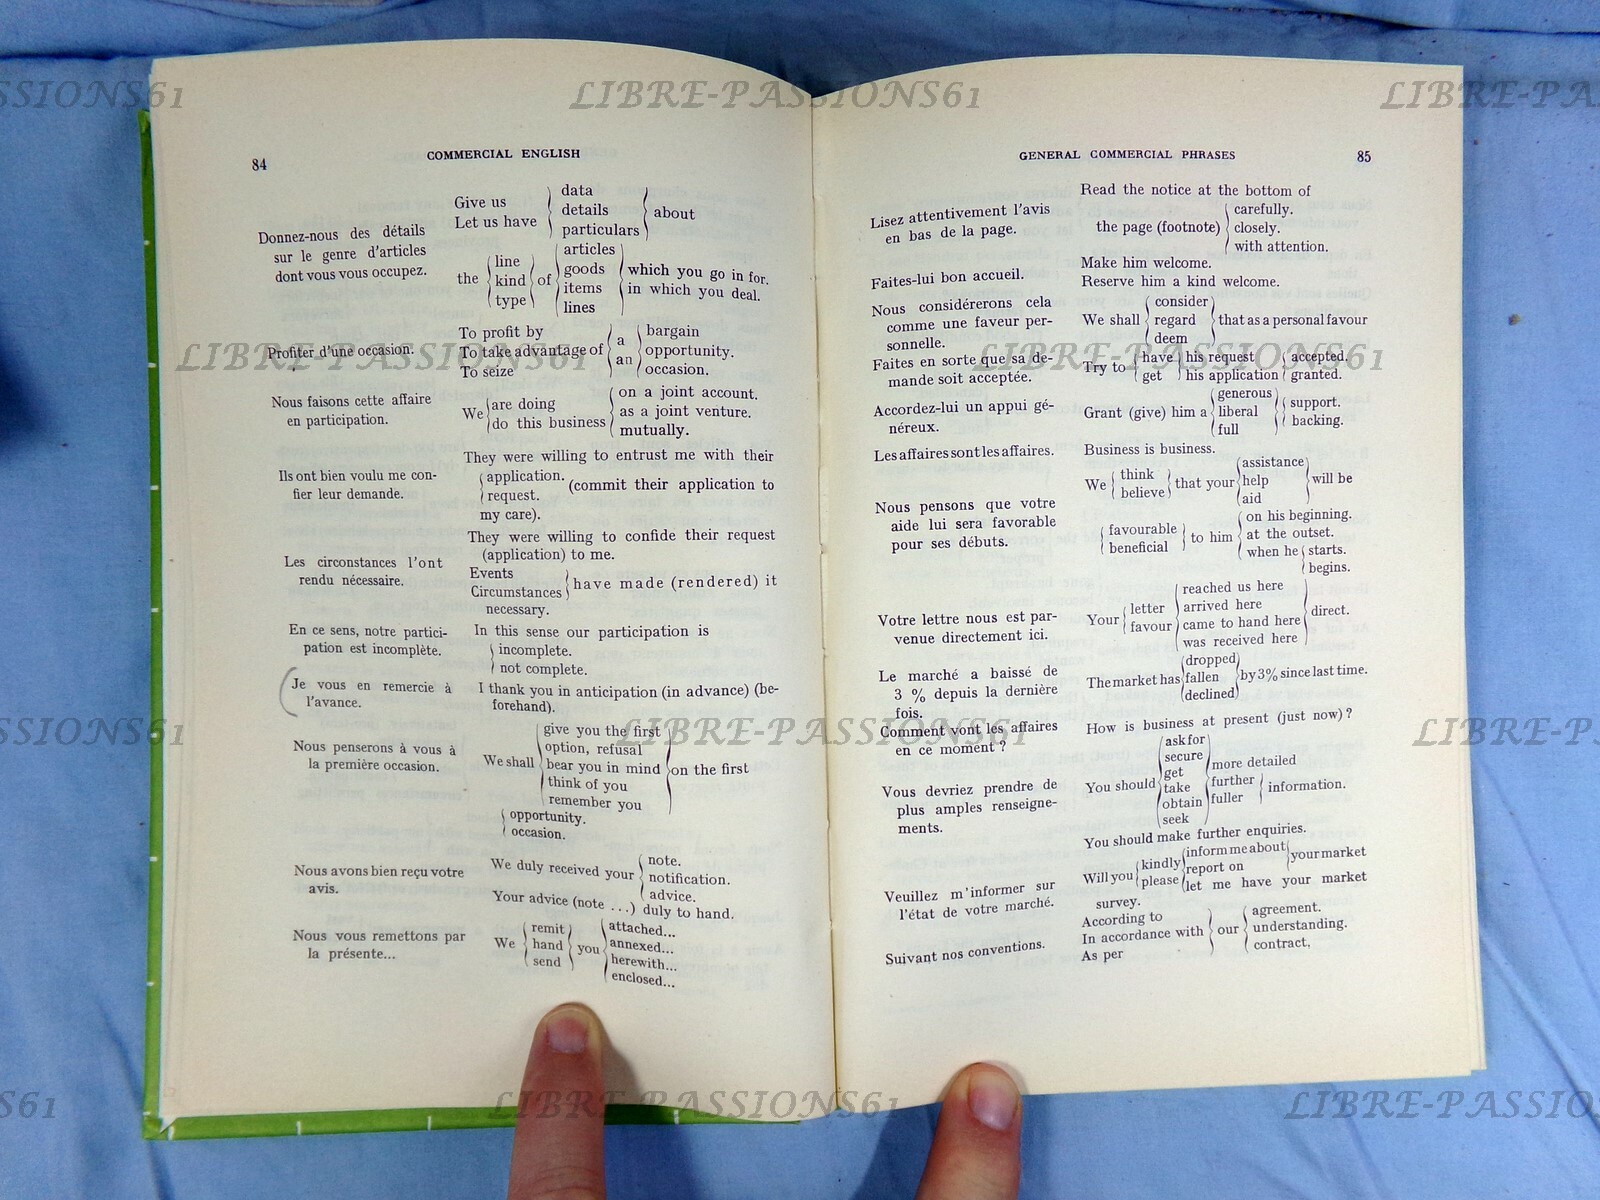 84
COMMERCIAL ENGLISH
Donnez-nous des détails
sur le genre d'articles
dont vous vous occupez.
Give us
Let us have
data
details
particulars
about
the
line
kind
type
of
articles
goods
items
lines
which you go in for.
in which you deal.
Profiter d'une occasion.
To profit by
To take advantage of
To seize
a
an
bargain
opportunity.
occasion.
Nous faisons cette affaire
en participation.
We
are doing
do this business
on a joint account.
as a joint venture.
mutually.
Ils ont bien voulu me con-
fier leur demande.
They were willing to entrust me with their
application.
request.
(commit their application to
my care).
They were willing to confide their request
(application) to me.
Les circonstances l'ont
rendu nécessaire.
Events
Circumstances
have made (rendered) it
necessary.
En ce sens, notre partici-
pation est incomplète.
In this sense our participation is
incomplete.
not complete.
Je vous en remercie à
l'avance.
I thank you in anticipation (in advance) (be-
forehand).
Nous penserons à vous à
la première occasion.
We shall
give you the first
option, refusal
bear you in mind
think of you
remember you
on the first
opportunity.
occasion.
Nous avons bien reçu votre
avis.
We duly received your
note.
notification.
advice.
Your advice (note ...) duly to hand.
Nous vous remettons par
la présente...
We
remit
hand
send
you
attached...
annexed...
herewith...
enclosed...
GENERAL COMMERCIAL PHRASES
85
Lisez attentivement l'avis
en bas de la page.
Read the notice at the bottom of
the page (footnote)
carefully.
closely.
with attention.
Faites-lui bon accueil.
Make him welcome.
Reserve him a kind welcome.
Nous considérerons cela
comme une faveur per-
sonnelle.
We shall
consider
regard
deem
that as a personal favour
Faites en sorte que sa de-
mande soit acceptée.
Try to
have
get
his request
his application
accepted.
granted.
Accordez-lui un appui gé-
néreux.
Grant (give) him a
generous
liberal
full
support.
backing.
Les affaires sont les affaires.
Business is business.
Nous pensons que votre
aide lui sera favorable
pour ses débuts.
We
think
believe
that your
assistance
help
aid
will be
favourable
beneficial
to him
on his beginning.
at the outset.
when he
starts.
begins.
Votre lettre nous est par-
venue directement ici.
Your
letter
favour
reached us here
arrived here
came to hand here
was received here
direct.
Le marché a baissé de
3 % depuis la dernière
fois.
The market has
dropped
fallen
declined
by 3% since last time.
Comment vont les affaires
en ce moment ?
How is business at present (just now) ?
Vous devriez prendre de
plus amples renseigne-
ments.
You should
ask for
secure
get
take
obtain
seek
more detailed
further
fuller
information.
You should make further enquiries.
Veuillez m'informer sur
l'état de votre marché.
Will you
kindly
please
inform me about
report on
your market
let me have your market
survey.
Suivant nos conventions.
According to
In accordance with
As per
our
agreement.
understanding.
contract,
SSIONS61
LIBRE-PASSIONS61
LIBRE-PA
LIBRE-PASSIONS61
LIBRE-PASSIONS61
SSIONS61
LIBRE-PASSIONS61
LIBRE-P
S61
LIBRE-PASSIONS61
LIBRE-PASSIO